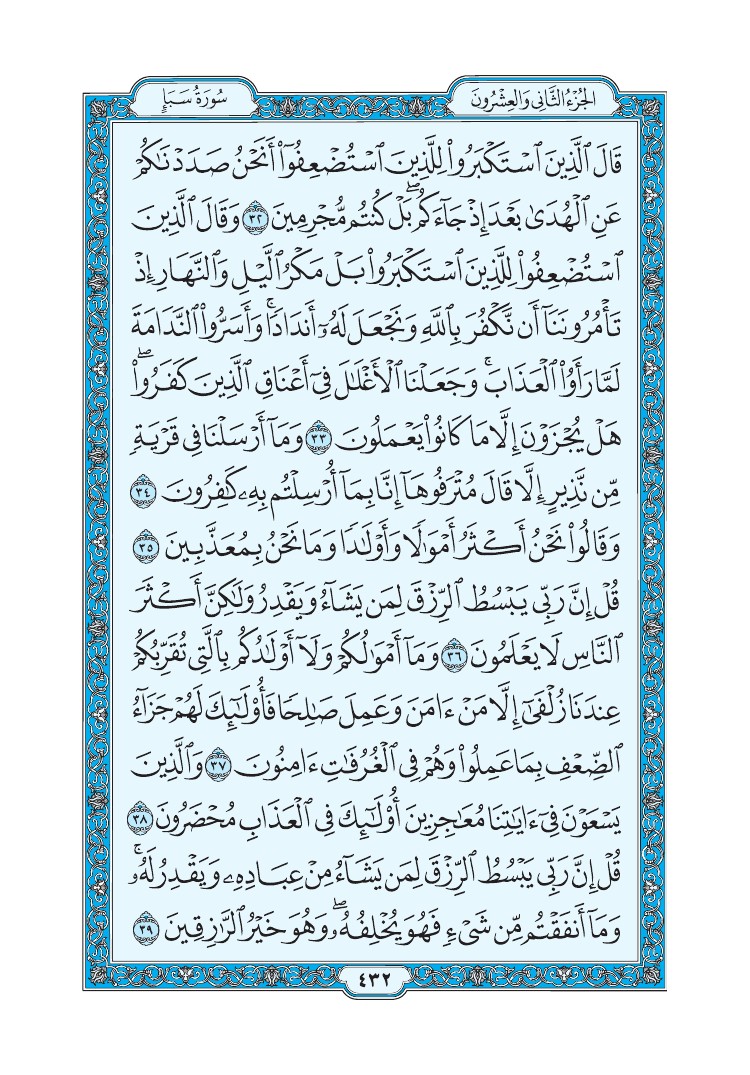 الجُزْءُ الثَّانِي وَالعِشْرُونَ
سُورَةُ سَبَإٍ
قَالَ ٱلَّذِينَ ٱسْتَكْبَرُوا۟ لِلَّذِينَ ٱسْتُضْعِفُوٓا۟ أَنَحْنُ صَدَدْنَٰكُمْ
عَنِ ٱلْهُدَىٰ بَعْدَ إِذْ جَآءَكُمۖ بَلْ كُنتُم مُّجْرِمِينَ ٣٢ وَقَالَ ٱلَّذِينَ
ٱسْتُضْعِفُوا۟ لِلَّذِينَ ٱسْتَكْبَرُوا۟ بَلْ مَكْرُ ٱلَّيْلِ وَٱلنَّهَارِ إِذْ
تَأْمُرُونَنَآ أَن نَّكْفُرَ بِٱللَّهِ وَنَجْعَلَ لَهُۥٓ أَندَادًاۚ وَأَسَرُّوا۟ ٱلنَّدَامَةَ
لَمَّا رَأَوُا۟ ٱلْعَذَابَۚ وَجَعَلْنَا ٱلْأَغْلَٰلَ فِىٓ أَعْنَاقِ ٱلَّذِينَ كَفَرُوا۟ۖ
هَلْ يُجْزَوْنَ إِلَّا مَا كَانُوا۟ يَعْمَلُونَ ٣٣ وَمَآ أَرْسَلْنَا فِى قَرْيَةٍ
مِّن نَّذِيرٍ إِلَّا قَالَ مُتْرَفُوهَآ إِنَّا بِمَآ أُرْسِلْتُم بِهِۦ كَٰفِرُونَ ٣٤
وَقَالُوا۟ نَحْنُ أَكْثَرُ أَمْوَٰلًا وَأَوْلَٰدًا وَمَا نَحْنُ بِمُعَذَّبِينَ ٣٥
قُلْ إِنَّ رَبِّى يَبْسُطُ ٱلرِّزْقَ لِمَن يَشَآءُ وَيَقْدِرُ وَلَٰكِنَّ أَكْثَرَ
ٱلنَّاسِ لَا يَعْلَمُونَ ٣٦ وَمَآ أَمْوَٰلُكُمْ وَلَآ أَوْلَٰدُكُم بِٱلَّتِى تُقَرِّبُكُمْ
عِندَنَا زُلْفَىٰٓ إِلَّا مَنْ ءَامَنَ وَعَمِلَ صَٰلِحًا فَأُو۟لَٰٓئِكَ لَهُمْ جَزَآءُ
ٱلضِّعْفِ بِمَا عَمِلُوا۟ وَهُمْ فِى ٱلْغُرُفَٰتِ ءَامِنُونَ ٣٧ وَٱلَّذِينَ
يَسْعَوْنَ فِىٓ ءَايَٰتِنَا مُعَٰجِزِينَ أُو۟لَٰٓئِكَ فِى ٱلْعَذَابِ مُحْضَرُونَ ٣٨
قُلْ إِنَّ رَبِّى يَبْسُطُ ٱلرِّزْقَ لِمَن يَشَآءُ مِنْ عِبَادِهِۦ وَيَقْدِرُ لَهُۥۚ
وَمَآ أَنفَقْتُم مِّن شَىْءٍ فَهُوَ يُخْلِفُهُۥۖ وَهُوَ خَيْرُ ٱلرَّٰزِقِينَ ٣٩
٤٣٢